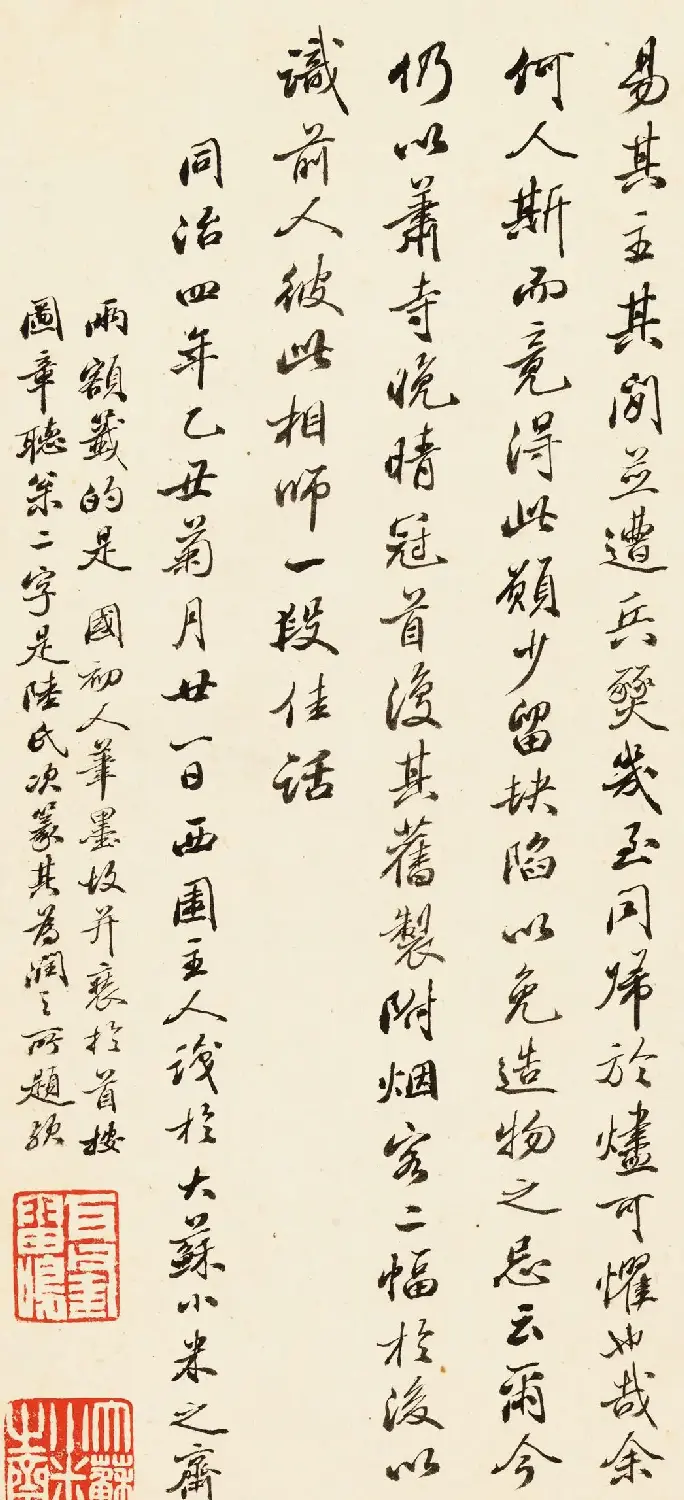 易其主其間並遭兵燹幾至同歸於燼可懼也哉余
何人斯而竟得此願少留缺陷以免造物之忌云爾今
仍以蕭寺晚晴冠首復其舊製附烟客二幅於後以
識前人彼此相師一段佳話
同治四年乙丑菊月廿一日西圃主人識於大蘇小米之齋
兩額籤的是國初人筆墨故并裝於首按
圖章聽槃二字是陸氏次篆其為潤之所題
大蘇小米之齋